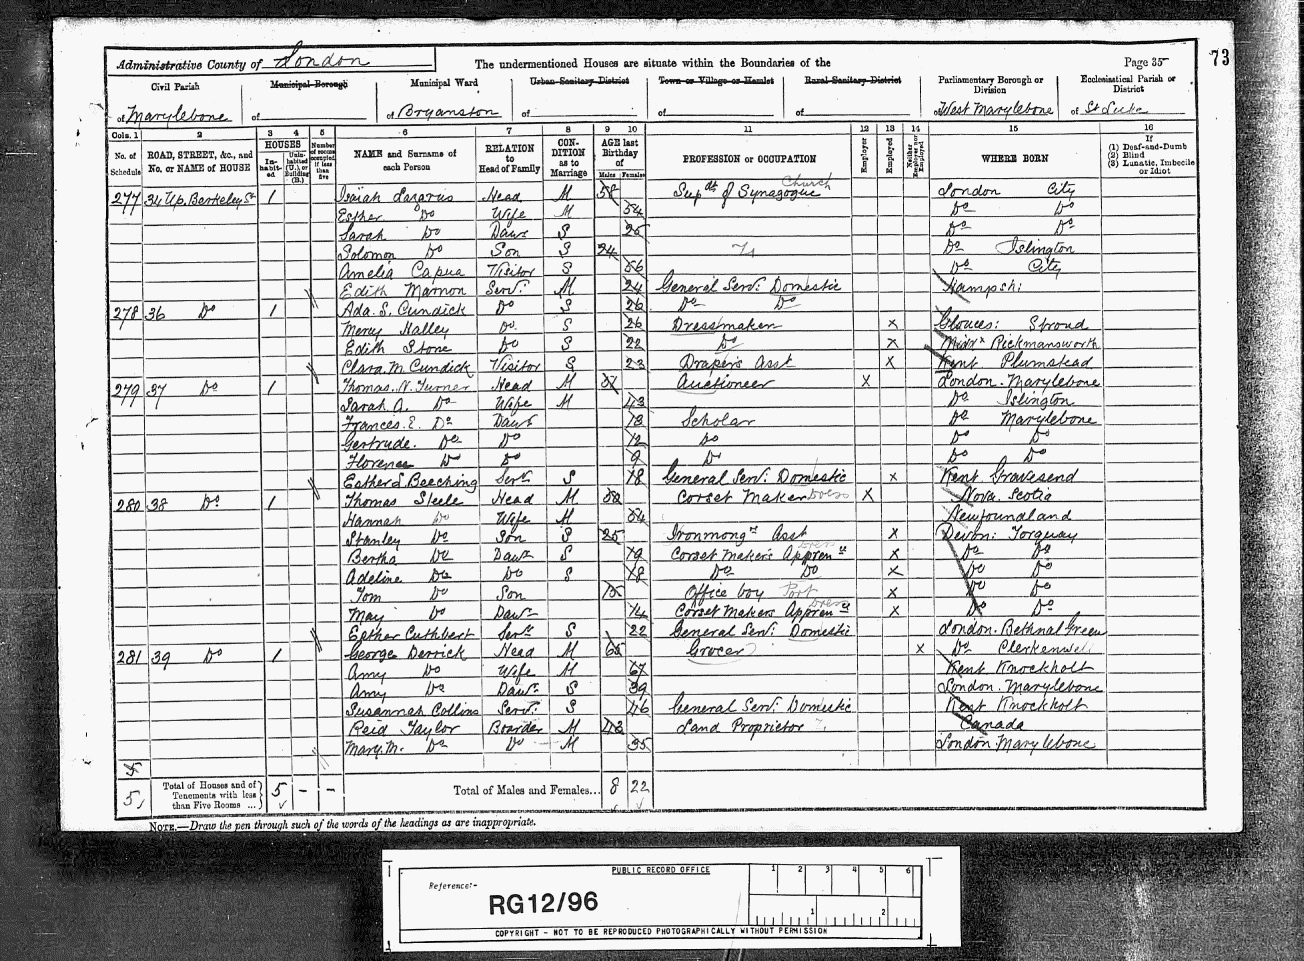 73
Administrative County of London The undermentioned Houses are situate within the Boundaries of the Page 35
Civil Parish Municipal Borough Municipal Ward Urban Sanitary District Town or Village or Hamlet Rural Sanitary District Parliamentary Borough or Division Ecclesiastical Parish or District
of Marylebone of of Bryanston of of of of West Marylebone of St Luke
Cols. 1 2 3 4 5 6 7 8 9 10 11 12 13 14 15 16
No. of Schedule ROAD, STREET, &c., and No. or NAME of HOUSE HOUSES Inhabited Uninhabited (U.), or Building (B.) Number of rooms occupied if less than five NAME and Surname of each Person RELATION to Head of Family CONDITION as to Marriage AGE last Birthday of Males Females PROFESSION or OCCUPATION Employer Employed Neither Employer nor Employed WHERE BORN If (1) Deaf-and-Dumb (2) Blind (3) Lunatic, Imbecile or Idiot
277 34 Up. Berkeley St 1 Isaiah Lazarus Head M 58 Supdt of Synagogue Church London City
Esther Do Wife M 54 Do Do
Sarah Do Daur S 25 Do Do
Solomon Do Son S 24 Do Islington
Amelia Capua Visitor S 56 Do City
Edith Marnon Servt M 24 General Servt Domestic Hampsh:
278 36 Do 1 Ada. S. Cundick Do S 26 Do Do
Mercy Halley Do S 26 Dressmaker x Glouces: Stroud
Edith Stone Do S 22 Do x Middx Rickmansworth
Clara. M. Cundick Visitor S 23 Draper's Asst x Kent Plumstead
279 37 Do 1 Thomas. N. Turner Head M Auctioneer x London. Marylebone
Sarah. A. Do Wife M 43 Do Islington
Frances. E. Do Daur 13 Scholar Do Marylebone
Gertrude. Do Do 12 Do Do Do
Florence Do Do 9 Do Do Do
Esther S Beeching Servt S 18 General Servt Domestic x Kent Gravesend
280 38 Do 1 Thomas Steele Head M Corset Maker Dress x Nova. Scotia
Hannah Do Wife M 54 Newfoundland
Stanley Do Son S 25 Ironmongrs Asst x Devon: Torquay
Bertha Do Daur S 19 Corset Makers Appren ce Dress x Do Do
Adeline Do Do S 18 Do Do x Do Do
Tom Do Son 15 Office boy Port x Do Do
May Do Daur 14 Corset Makers Appren ce Dress x Do Do
Esther Cuthbert Servt S 22 General Servt Domestic London. Bethnal Green
281 39 Do 1 George Derrick Head M 65 Grocer x Do Clerkenwell
Amy Do Wife M 67 Kent Knockholt
Amy Do Daur S 39 London. Marylebone
Susannah Collins Servt S 46 General Servt Domestic Kent Knockholt
Reid Taylor Boarder M 43 Land Proprietor Canada
Mary. M. Do Do M 35 London Marylebone
5 Total of Houses and of Tenements with less than Five Rooms ... 5 - - Total of Males and Females... 8 22
NOTE.—Draw the pen through such of the words of the headings as are inappropriate.
PUBLIC RECORD OFFICE 1 2 3 4 5 6
Reference:-
RG12/96 1 2
COPYRIGHT - NOT TO BE REPRODUCED PHOTOGRAPHICALLY WITHOUT PERMISSION